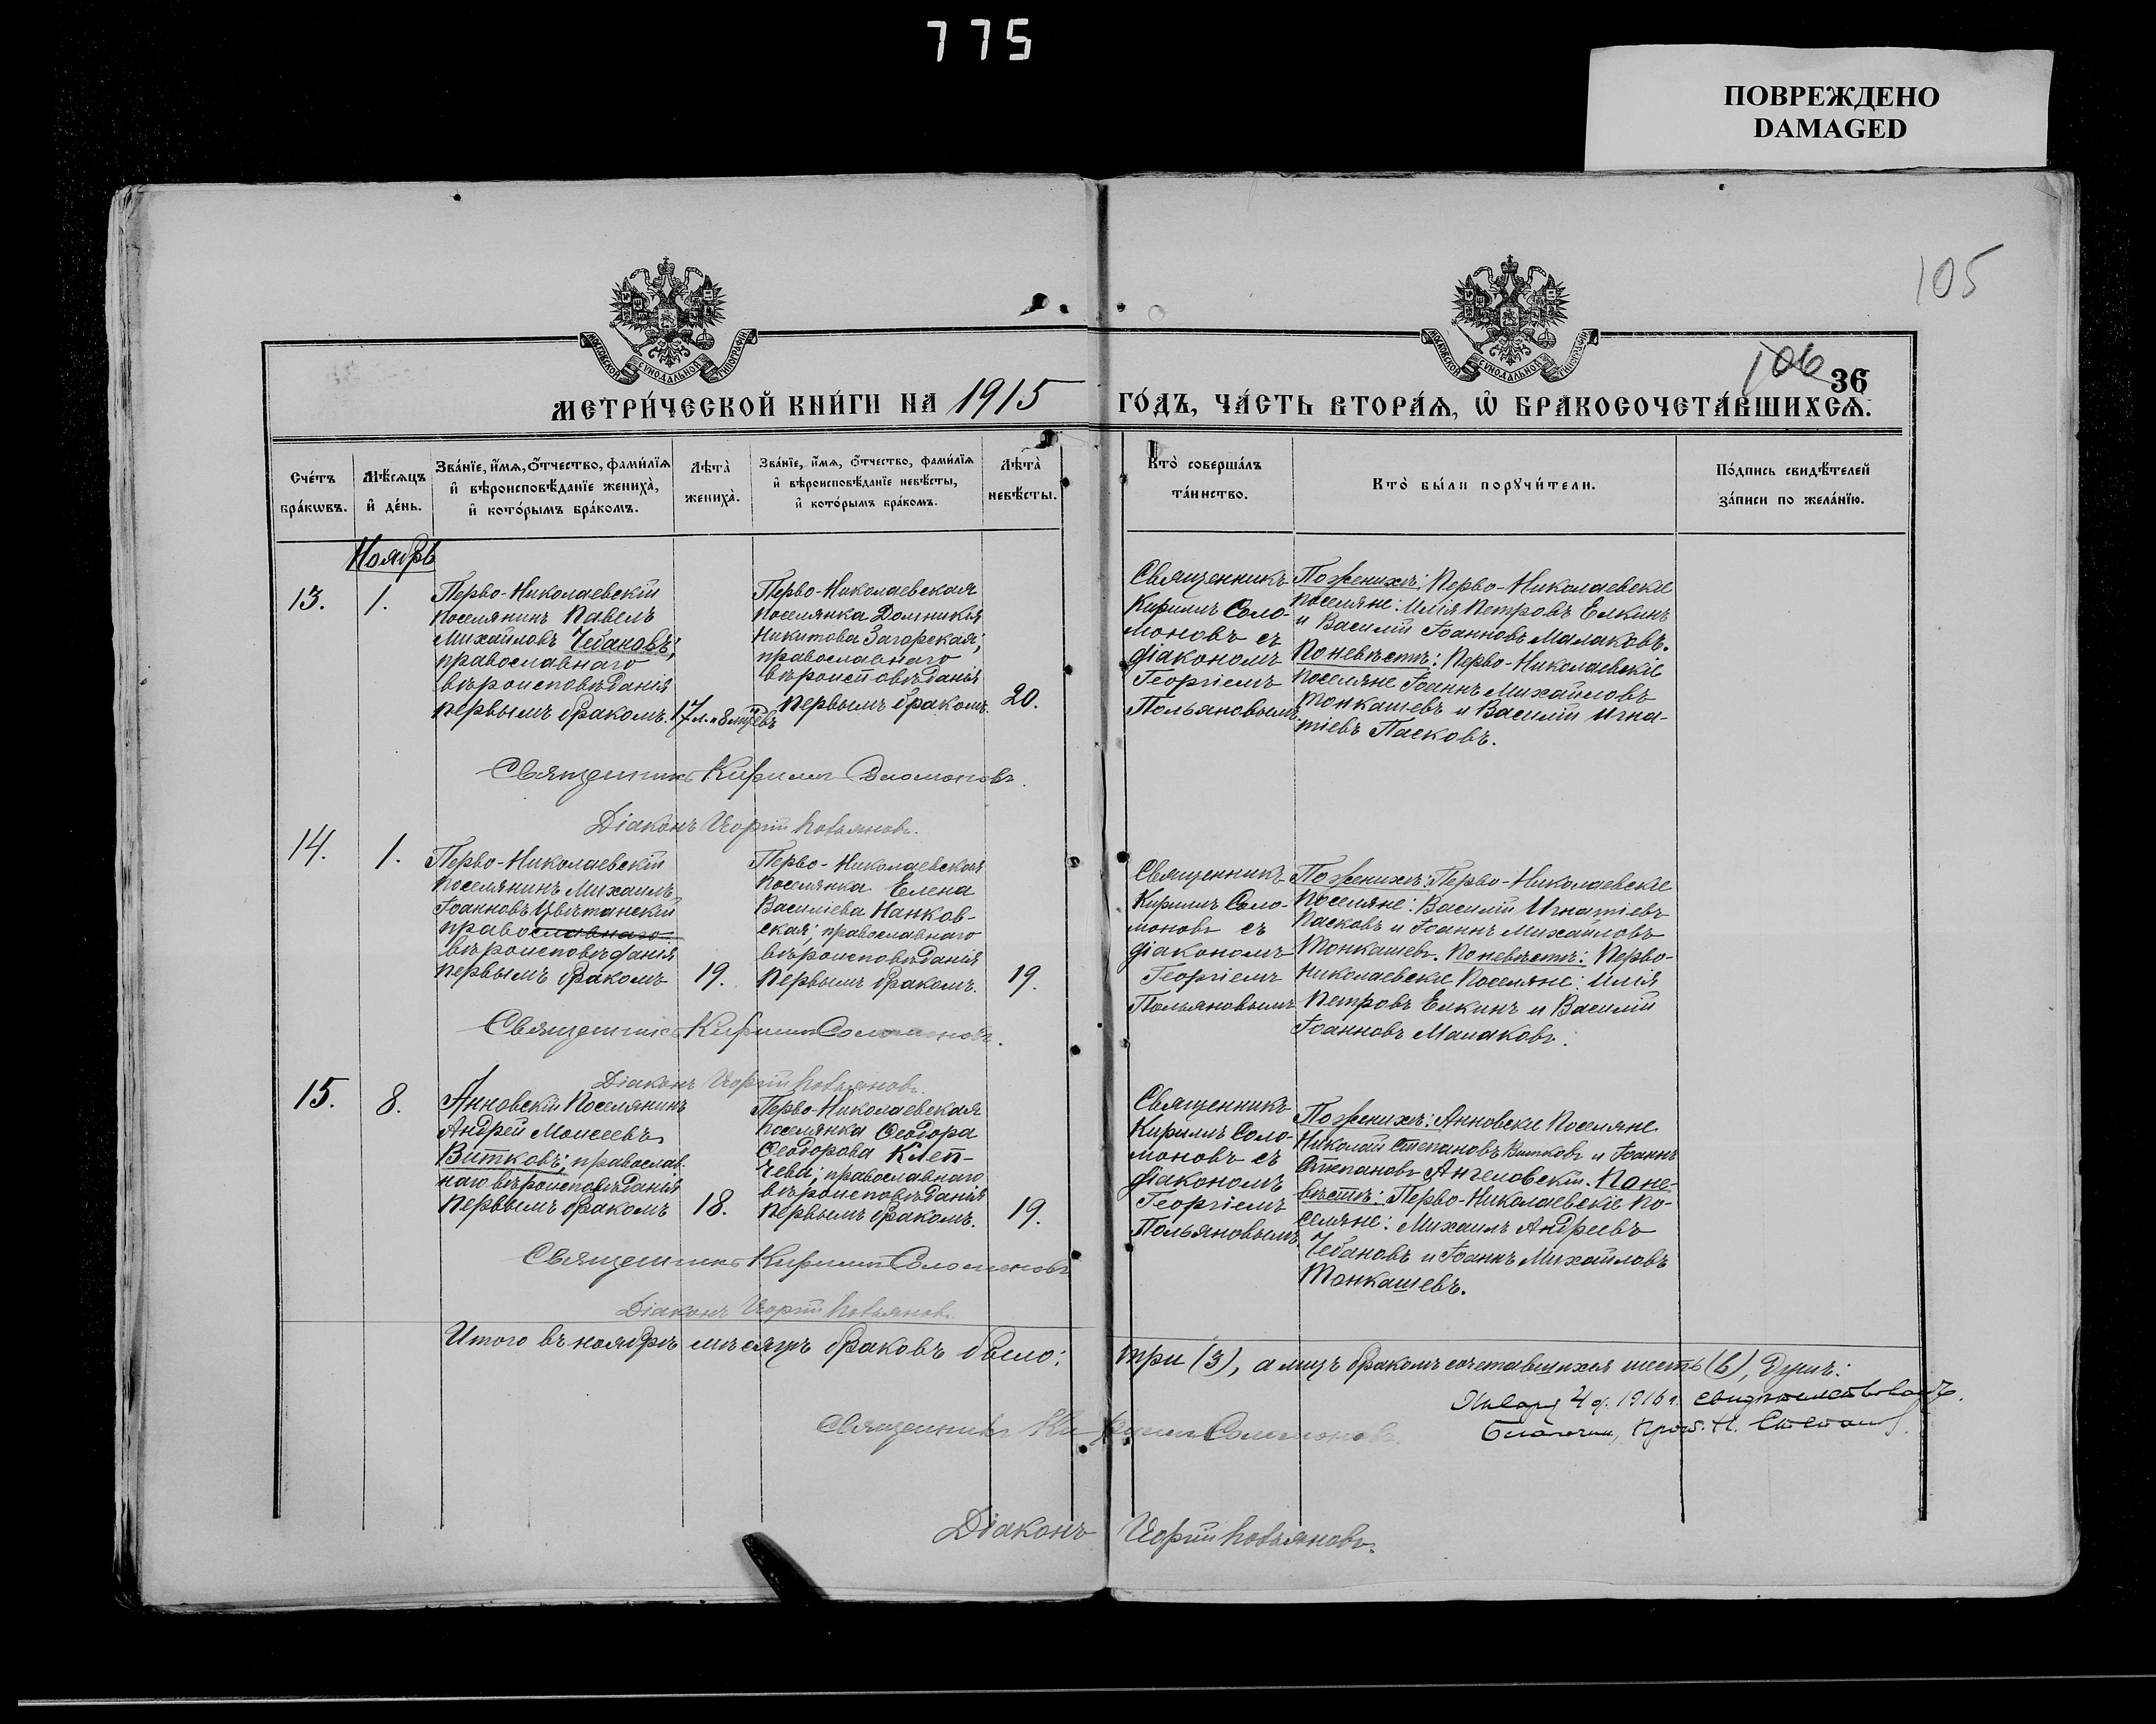 775
ПОВРЕЖДЕНО
DAMAGED
105
106
36
МЕТРИ́ЧЕСКОЙ КНИ́ГИ НА 1915 ГО́ДЪ, ЧА́СТЬ ВТОРА́Ѧ, Ѡ҆ БРАКОСОЧЕТА́ВШИХСѦ.
МОСКОВСКОЙ СѴНОДАЛЬНОЙ ТИПОГРАФІИ
МОСКОВСКОЙ СѴНОДАЛЬНОЙ ТИПОГРАФІИ
Сче́тъ
бра́кѡвъ.
Мѣ́сѧцъ
и҆ де́нь.
Зва́нїе, и҆́мѧ, ѻ҆́тчество, фами́лїѧ
и҆ вѣроисповѣ́данїе жениха̀,
и҆ кото́рымъ бра́комъ.
Лѣ́та̀
жениха̀.
Зва́нїе, и҆́мѧ, ѻ҆́тчество, фами́лїѧ
и҆ вѣроисповѣ́данїе невѣ́сты,
и҆ кото́рымъ бра́комъ.
Лѣ́та̀
невѣ́сты.
Кто̀ соверша́лъ
та́инство.
Кто̀ бы́ли порꙋчи́тели.
По́дпись свидѣ́телей
за́писи по жела́нїю.
Ноябрь
13.
1.
Перво-Николаевскій
поселянинъ Павелъ
Михайловъ Чебановъ;
православнаго
вѣроисповѣданія
первымъ бракомъ.
17 л. и 8 мѣс
Перво-Николаевская
поселянка Домникія
Никитова Загорская;
православнаго
вѣроисповѣданія
первымъ бракомъ.
20.
Священникъ
Кириллъ Соло-
моновъ съ
діакономъ
Георгіемъ
Польяновымъ
По женихѣ: Перво-Николаевскіе
поселяне: Илія Петровъ Елкинъ
и Василій Іоанновъ Малаковъ.
По невѣстѣ: Перво-Николаевскіе
поселяне Іоаннъ Михайловъ
Тонкашевъ и Василій Игна-
тіевъ Пасковъ.
Священникъ Кириллъ Соломоновъ.
Діаконъ Георгій Польяновъ.
14.
1.
Перво-Николаевскій
поселянинъ Михаилъ
Іоанновъ Цвѣтанскій
православнаго
вѣроисповѣданія
первымъ бракомъ
19.
Перво-Николаевская
поселянка Елена
Василіева Нанков-
ская; православнаго
вѣроисповѣданія
первымъ бракомъ.
19.
Священникъ
Кириллъ Соло-
моновъ съ
діакономъ
Георгіемъ
Польяновымъ
По женихѣ: Перво-Николаевскіе
поселяне: Василій Игнатіевъ
Пасковъ и Іоаннъ Михайловъ
Тонкашевъ. По невѣстѣ: Перво-
Николаевскіе поселяне: Илія
Петровъ Елкинъ и Василій
Іоанновъ Малаковъ.
Священникъ Кириллъ Соломоновъ.
Діаконъ Георгій Польяновъ.
15.
8.
Анновскій поселянинъ
Андрей Моисеевъ
Витковъ; православ-
наго вѣроисповѣданія
первымъ бракомъ
18.
Перво-Николаевская
поселянка Ѳеодора
Ѳеодорова Клеп-
чева; православнаго
вѣроисповѣданія
первымъ бракомъ.
19.
Священникъ
Кириллъ Соло-
моновъ съ
діакономъ
Георгіемъ
Польяновымъ
По женихѣ: Анновскіе поселяне
Николай Степановъ Витковъ и Іоаннъ
Степановъ Ангеловскій. По не-
вѣстѣ: Перво-Николаевскіе по-
селяне: Михаилъ Андреевъ
Чебановъ и Іоаннъ Михайловъ
Тонкашевъ.
Священникъ Кириллъ Соломоновъ
Діаконъ Георгій Польяновъ.
Итого въ ноябрѣ мѣсяцѣ браковъ было: три (3), а лицъ бракомъ сочетавшихся шесть (6), душъ:
Января 4 д. 1916 г. свидѣтельствовалъ.
Благочин, Прот. Н.
Священникъ Кириллъ Соломоновъ.
Діаконъ Георгій Польяновъ.